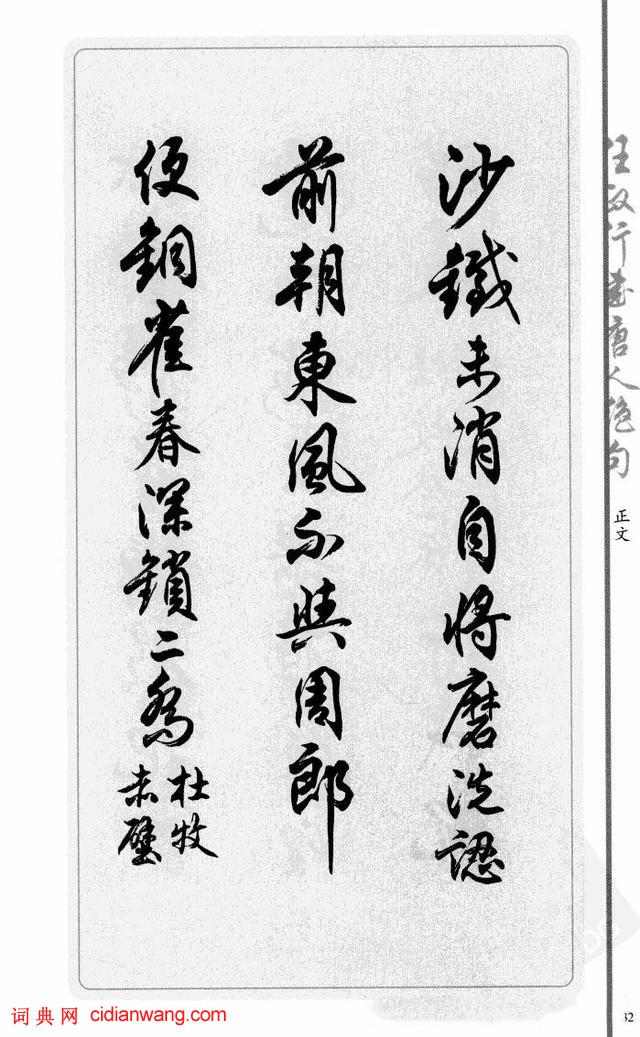 行书唐人绝句
正文
沙鐵未消自將磨洗認
前朝東風不與周郎
便銅雀春深鎖二喬
杜牧
赤壁
词典网 cidianwang.com